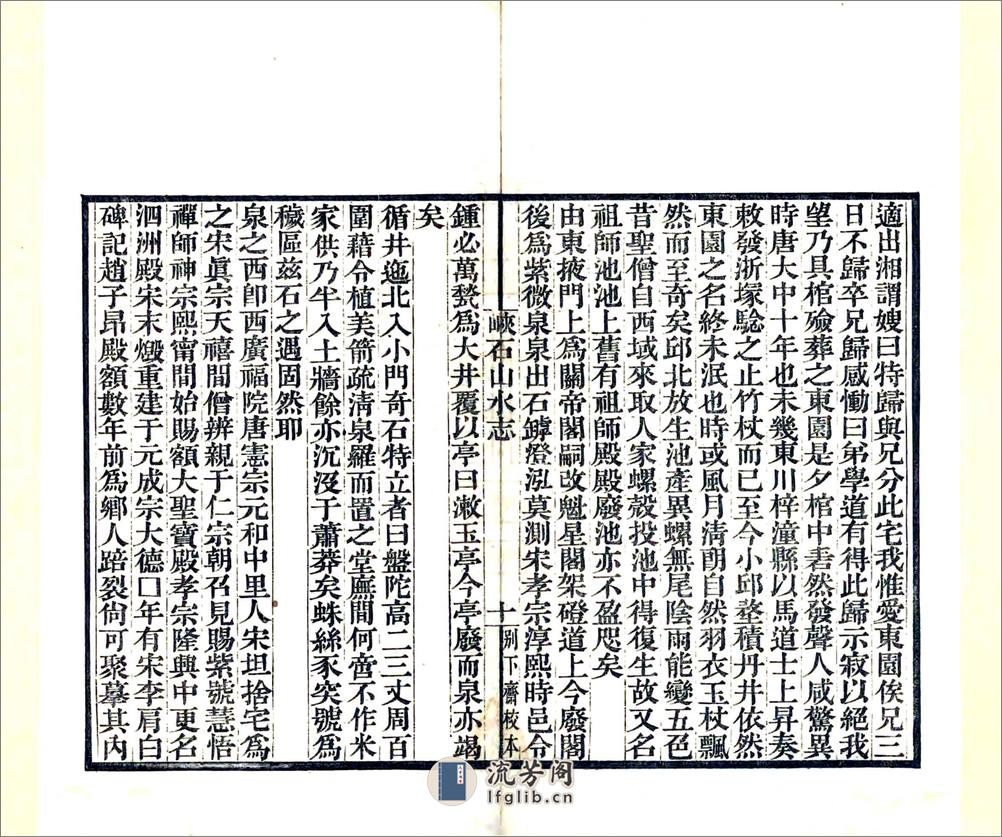 適出湘謂嫂曰特歸與兄分此宅我惟愛東園俟兄三
日不歸卒兄歸感慟曰弟學道有得此歸示寂以絕我
望乃具棺殮葬之東園是夕棺中砉然發聲人咸驚異
時唐大中十年也未幾東川梓潼縣以馬道士上昇奏
敕發浙塚驗之止竹杖而已至今小邱墪積丹井依然
東園之名終未泯也時或風月清朗自然羽衣玉杖飄
然而至奇矣邱北放生池產異螺無尾陰雨能變五色
昔聖僧自西域來取人家螺殼投池中得復生故又名
祖師池池上舊有祖師殿殿廢池亦不盈咫矣
由東掖門上爲關帝閣嗣改魁星閣架磴道上今廢閣
後爲紫微泉泉出石罅澄泓莫測宋孝宗淳熙時邑令
鍾必萬甃爲大井覆以亭曰漱玉亭今亭廢而泉亦竭
矣
循井迤北入小門奇石特立者曰盤陀高二三丈周百
圍藉令植美箭疏清泉羅而置之堂廡間何啻不作米
家供乃半入土牆餘亦沉沒于蕭莽矣蛛絲豕突號爲
穢區茲石之遇固然耶
泉之西卽西廣福院唐憲宗元和中里人宋坦捨宅爲
之宋眞宗天禧間僧辨親于仁宗朝召見賜紫號慧悟
禪師神宗熙甯間始賜額大聖寶殿孝宗隆興中更名
泗洲殿宋末燬重建于元成宗大德口年有宋李肩白
碑記趙子昂殿額數年前爲鄉人踣裂尙可聚摹其內
峽石山水志
十
別下齋校本
流芳阁
lfglib.cn